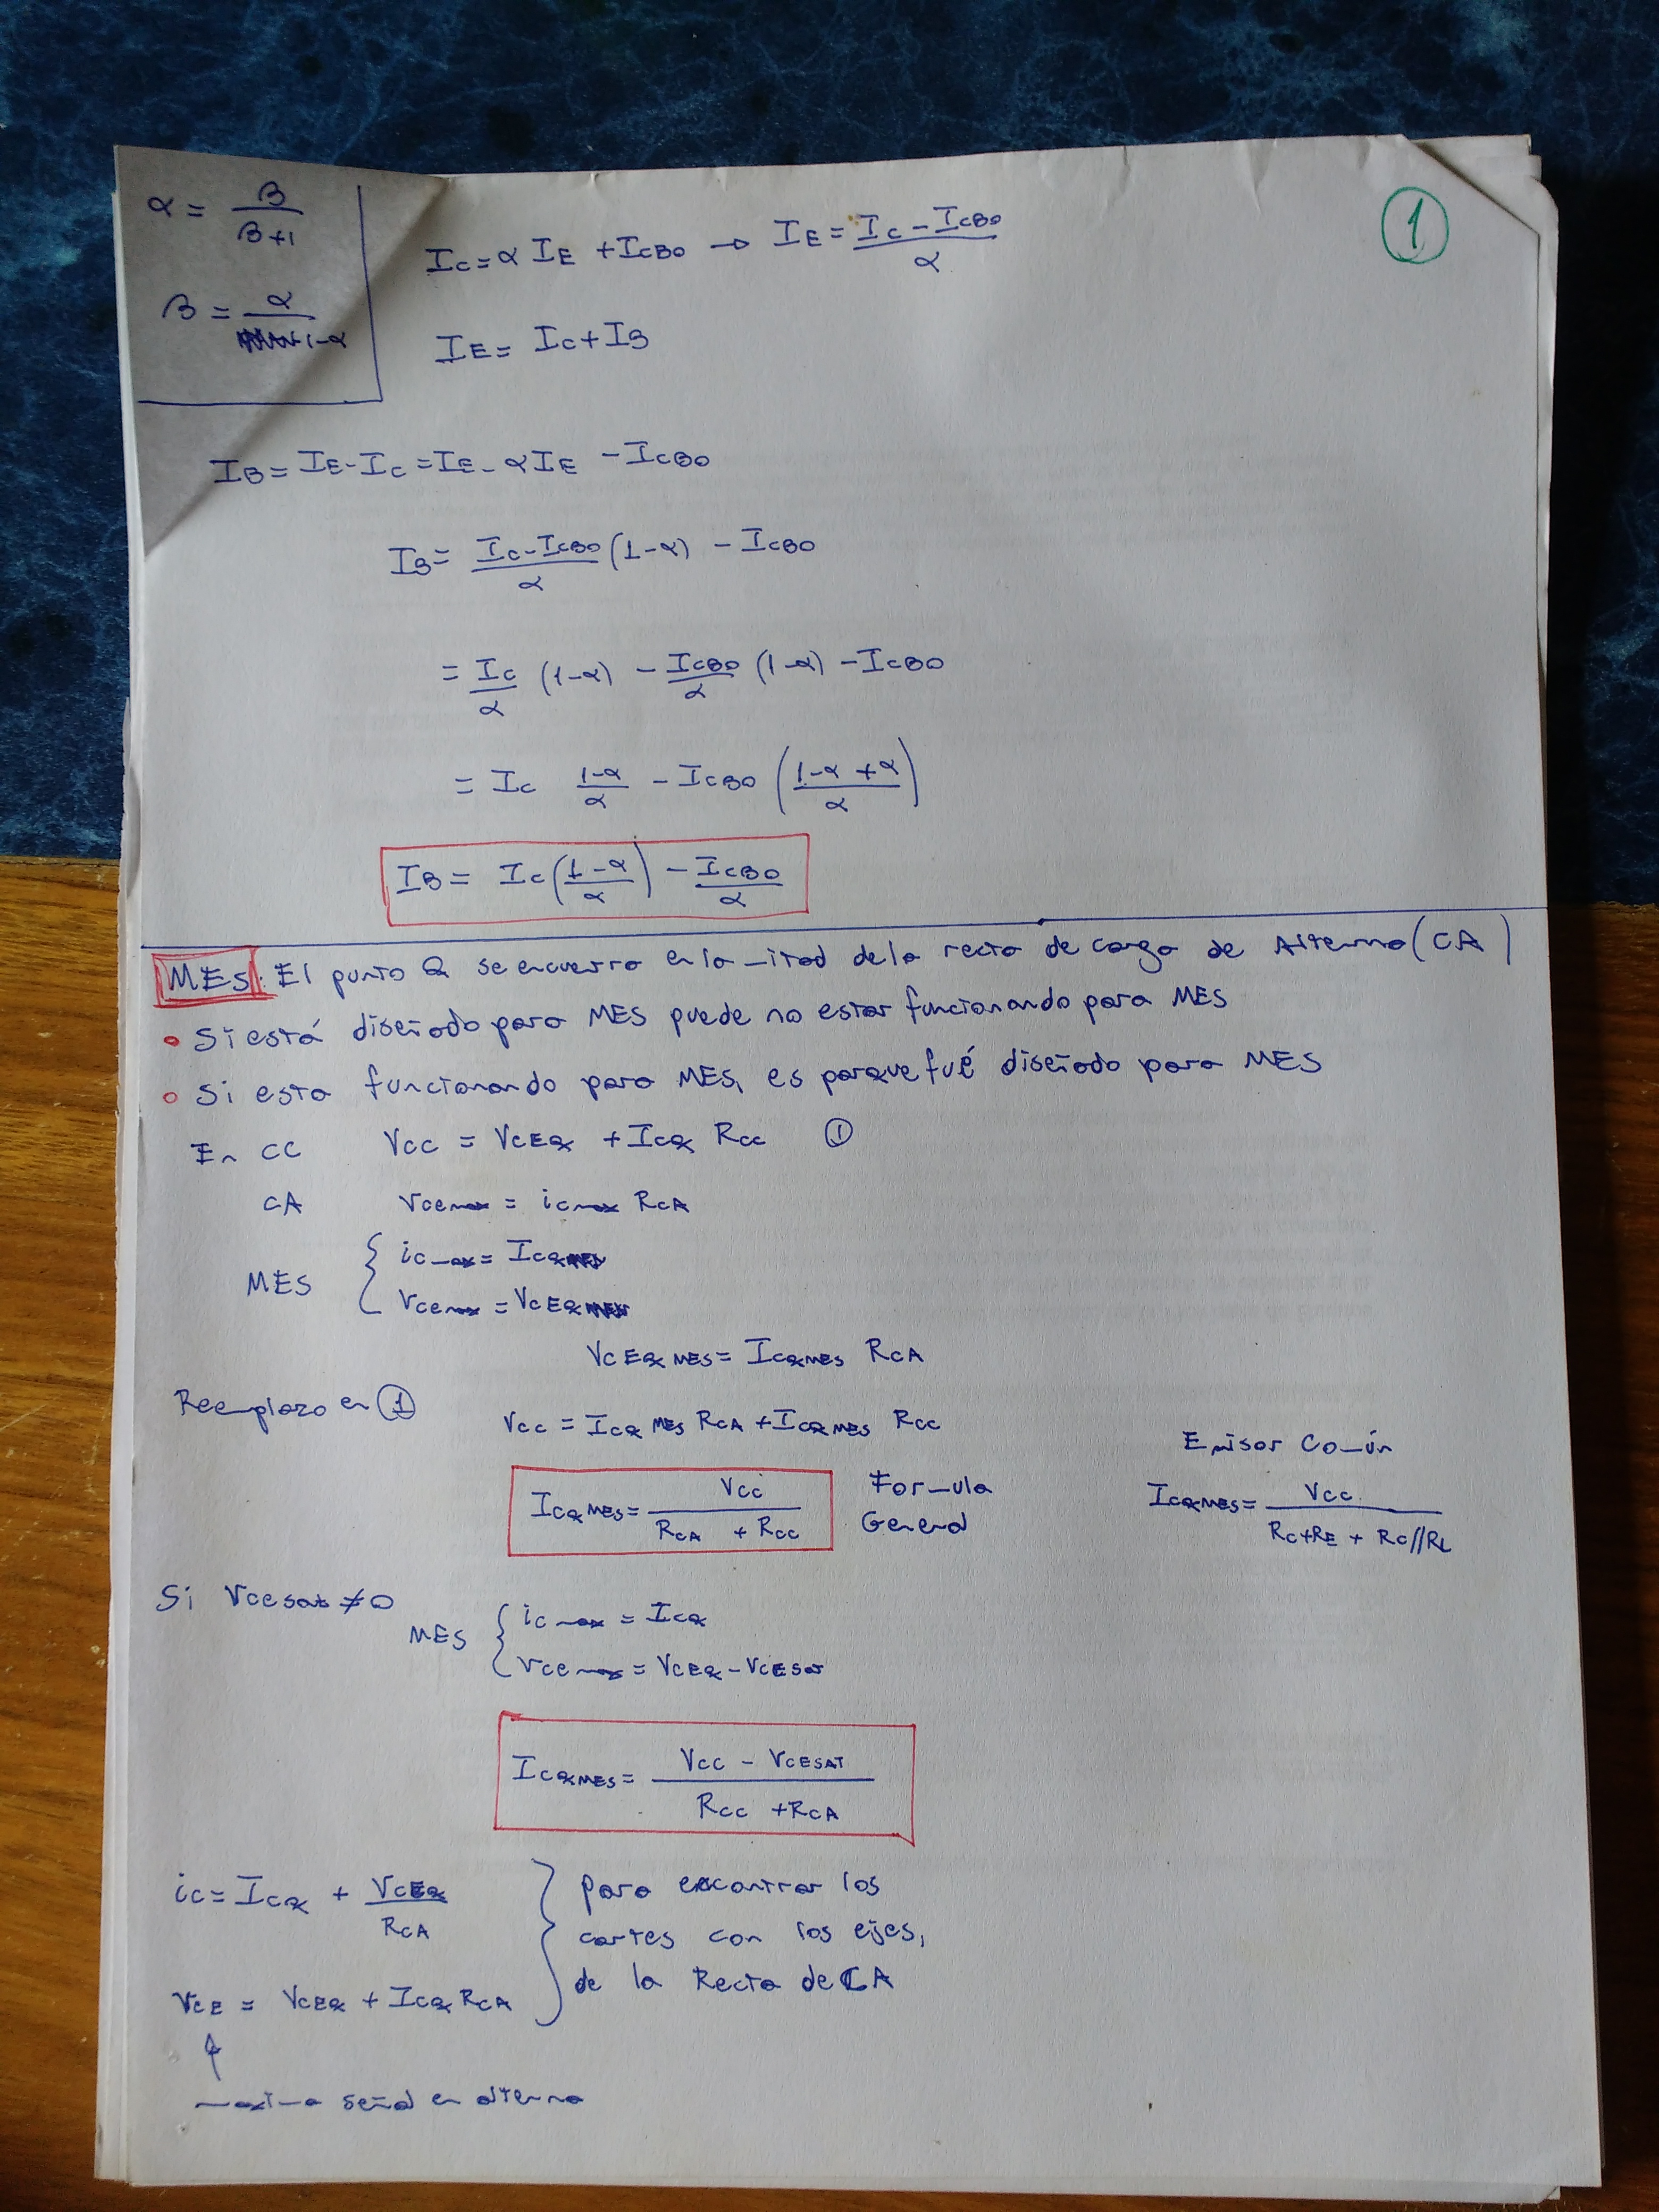 α = β/(β+1)
β = α/(1-α)
①
Ic = α IE + ICBO → IE = (Ic - ICBO)/α
IE = Ic + IB
IB = IE - Ic = IE - αIE - ICBO
IB = (Ic - ICBO)/α (1-α) - ICBO
= Ic/α (1-α) - ICBO/α (1-α) - ICBO
= Ic (1-α)/α - ICBO ((1-α+α)/α)
IB = Ic ((1-α)/α) - ICBO/α
MES: El punto Q se encuentra en la mitad de la recta de carga de Alterna (CA)
• Si está diseñado para MES puede no estar funcionando para MES
• Si esta funcionando para MES, es porque fué diseñado para MES
En CC Vcc = VCEQ + ICQ Rcc ①
CA Vcemax = icmax RCA
MES { icmax = ICQ
Vcemax = VCEQ
VCEQ MES = ICQ MES RCA
Reemplazo en ①
Vcc = ICQ MES RCA + ICQ MES Rcc
ICQ MES = Vcc/(RCA + Rcc) Formula General
Emisor Común
ICQ MES = Vcc/(Rc+RE + Rc//RL)
Si Vcesat ≠ 0
MES { icmax = ICQ
Vcemax = VCEQ - VCEsat
ICQ MES = (Vcc - VCESAT)/(Rcc + RCA)
ic = ICQ + VCEQ/RCA
VCE = VCEQ + ICQ RCA
} para encontrar los
cortes con los ejes,
de la Recta de CA
↑
maxima señal en alterna